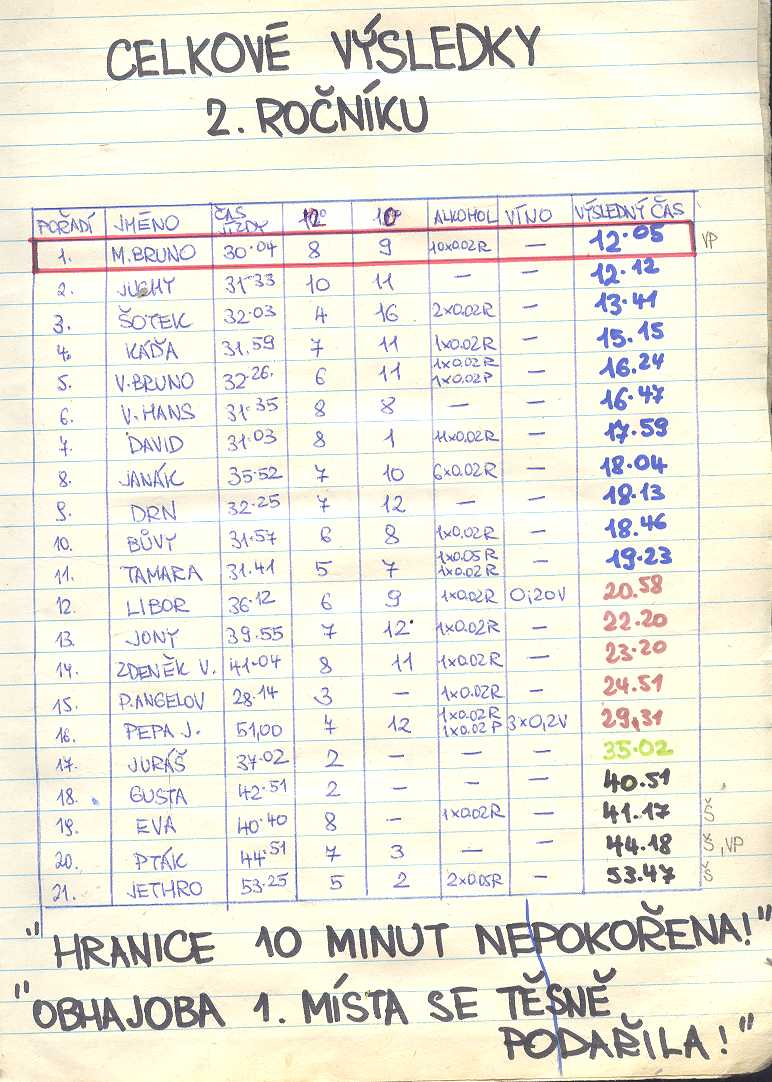 CELKOVÉ VÝSLEDKY
2. ROČNÍKU
POŘADÍ JMÉNO ČAS JÍZDY 12° 10° ALKOHOL VÍNO VÝSLEDNÝ ČAS
1. M.BRUNO 30.04 8 9 10x0.02R — 12.05 VP
2. JUCHY 31.33 10 11 — — 12.12
3. ŠOTEK 32.03 4 16 2x0.02R — 13.41
4. KÁĎA 31.59 7 11 1x0.02R — 15.15
5. V.BRUNO 32.26. 6 11 1x0.02R 1x0.02P — 16.24
6. V.HANS 31.35 8 8 — — 16.47
7. DAVID 31.03 8 1 11x0.02R — 17.59
8. JANÁK 35.52 7 10 6x0.02R — 18.04
9. DRN 32.25 7 12 — — 18.13
10. BŮVY 31.57 6 8 1x0.02R — 18.46
11. TAMARA 31.41 5 7 1x0.05R 1x0.02R — 19.23
12. LIBOR 36.12 6 9 1x0.02R 0,20V 20.58
13. JONY 39.55 7 12. 1x0.02R — 22.20
14. ZDENĚK V. 41.04 8 11 1x0.02R — 23.20
15. P.ANGELOV 28.14 3 — 1x0.02R — 24.51
16. PEPA J. 51,00 7 12 1x0.02R 1x0.02P 3x0,2V 29,31
17. JURÁŠ 37.02 2 — — — 35.02
18. GUSTA 42.51 2 — — — 40.51
19. EVA 40.40 8 — 1x0.02R — 41.17 Š
20. PTÁK 44.51 7 3 — — 44.18 Š,VP
21. JETHRO 53.25 5 2 2x0.05R — 53.47 Š
"HRANICE 10 MINUT NEPOKOŘENA!"
"OBHAJOBA 1. MÍSTA SE TĚSNĚ
PODAŘILA!"